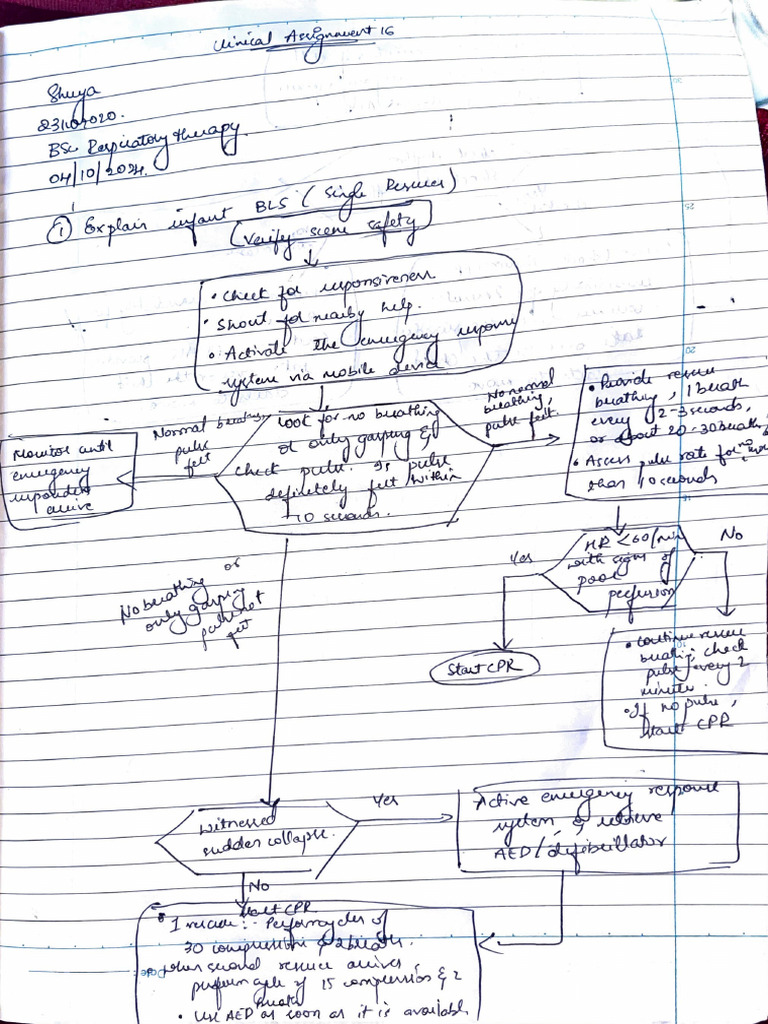 Clinical Assignment 16
Shuya
BSc Respiratory therapy
04/10/2024
① Explain infant BLS (Single Rescuer)
Verify scene safety
• Check for responsiveness
• Shout for nearby help.
• Activate the emergency response
system via mobile device
Normal breathing
pulse
felt
Monitor until
emergency
responders
arrive
look for no breathing
or only gasping &
check pulse. Is pulse
definitely felt within
10 seconds.
No normal
breathing,
pulse felt.
• Provide rescue
breathing, 1 breath
every 2-3 seconds,
or about 20-30 breath
• Assess pulse rate for no more
than 10 seconds
HR <60/min
with signs of
poor
perfusion
Yes
No
Start CPR
• Continue rescue
breathing; check
pulse every 2
minute.
• If no pulse,
start CPR
No breathing or
only gasping
pulse not
felt
Witnessed
sudden collapse.
Yes
Active emergency response
system & retrieve
AED/defibrillator
No
Start CPR
• 1 rescue:- Perform cycles of
30 compression & 2 breath.
• When second rescue arrives,
perform cycle of 15 compression & 2
breath
• Use AED as soon as it is available
Date